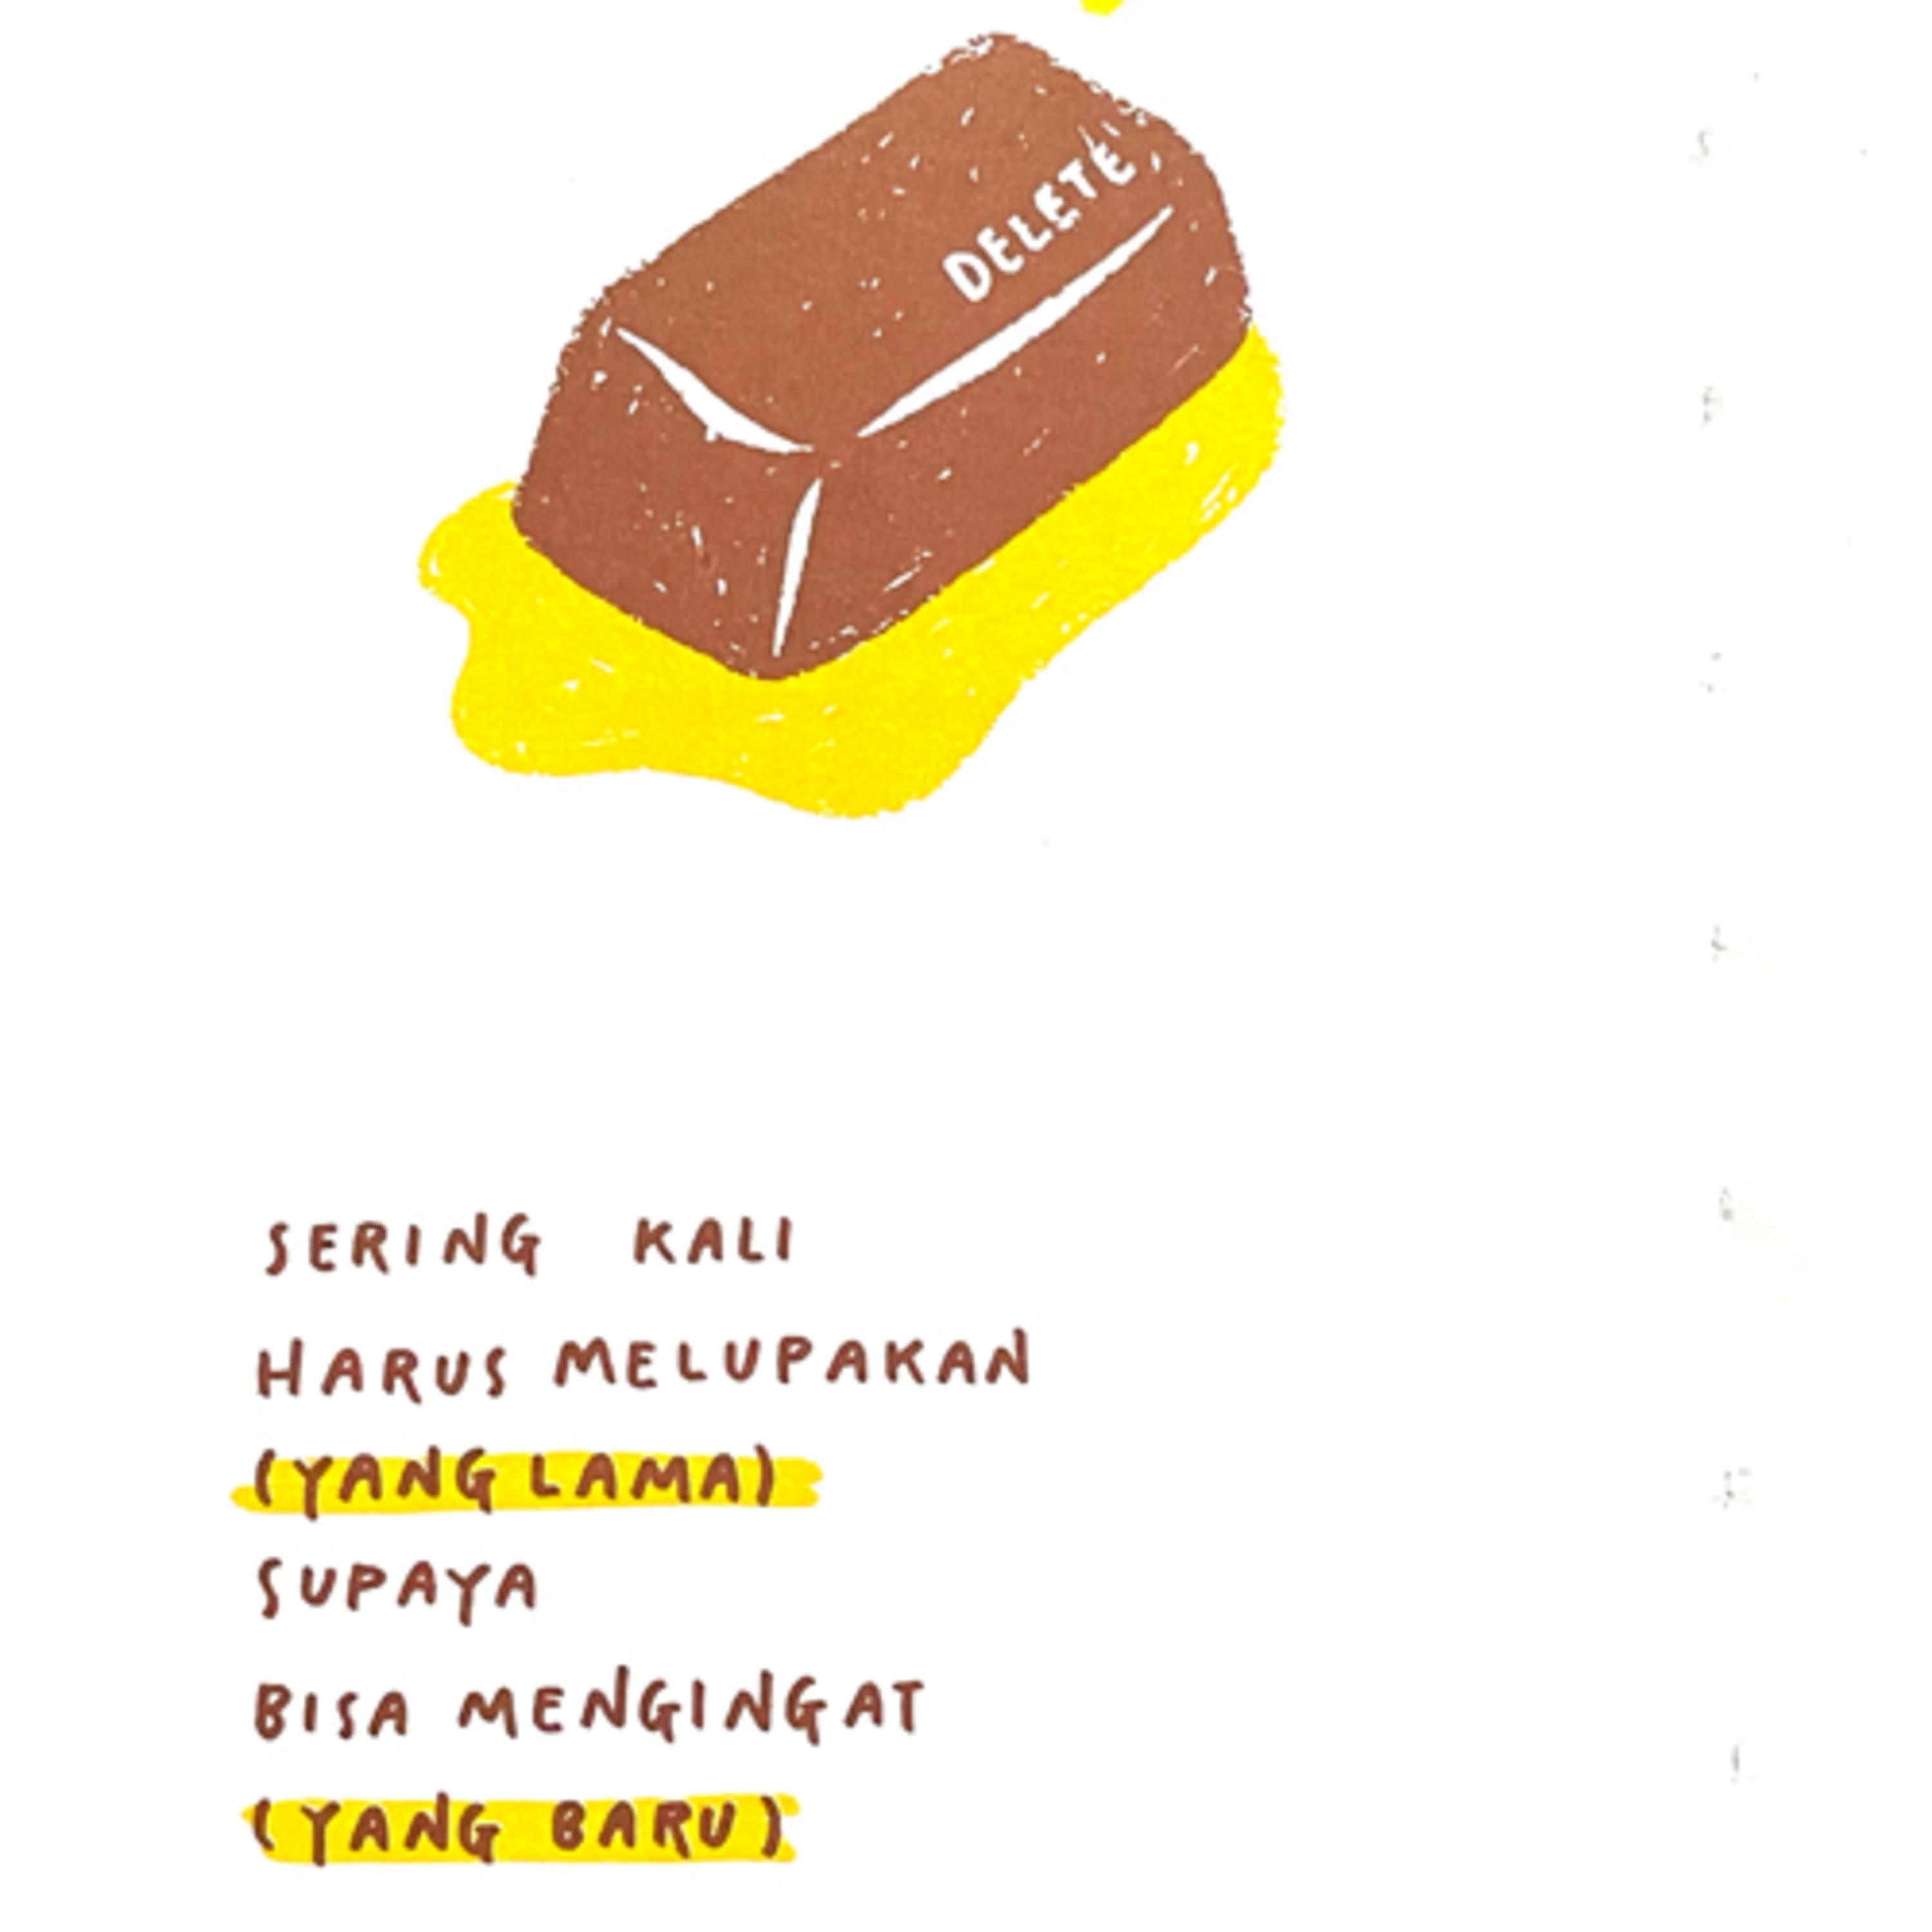 DELETE
SERING KALI
HARUS MELUPAKAN
(YANG LAMA)
SUPAYA
BISA MENGINGAT
(YANG BARU)